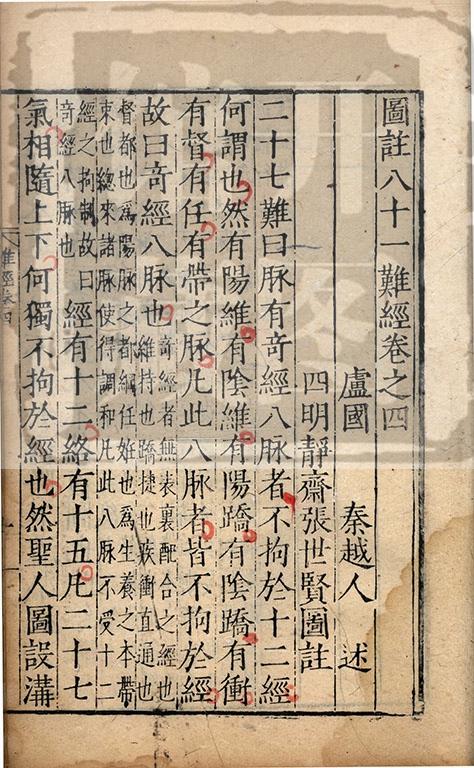 圖註八十一難經卷之四
盧國 秦越人 述
四明靜齋張世賢圖註
二十七難曰脉有奇經八脉者不拘於十二經
何謂也然有陽維有陰維有陽蹻有陰蹻有衝
有督有任有帶之脉凡此八脉者皆不拘於經
故曰奇經八脉也
奇經者無表裏配合之經也
維持也蹻捷也疾衝直通也
督都也爲陽脉之都綱任妊也爲生養之本帶
束也總束諸脉使得調和凡此八脉不受十二
經之拘制故曰
奇經八脉也
經有十二絡有十五凡二十七
氣相隨上下何獨不拘於經也然聖人圖設溝
難經卷四